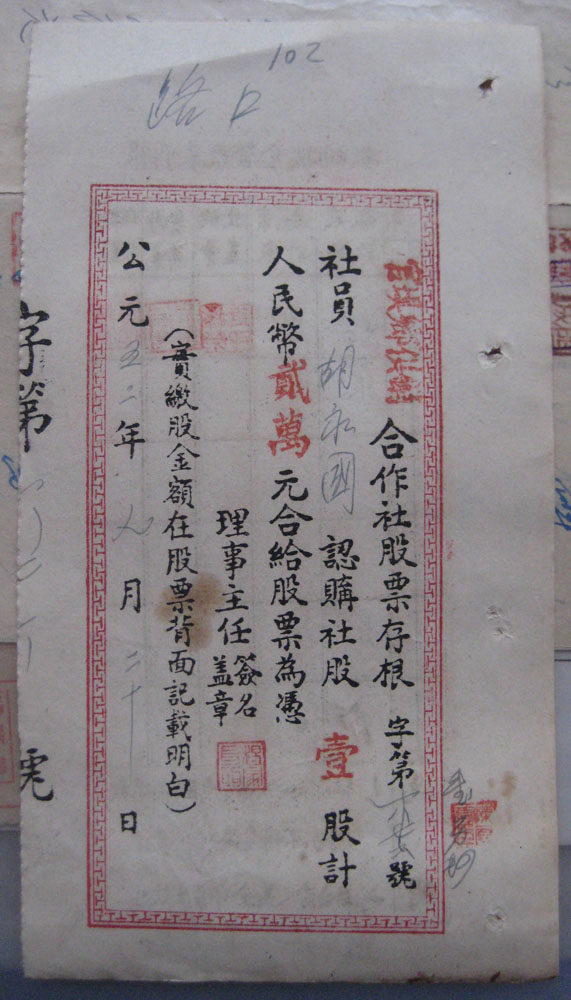 102
路口
合作社股票存根 字第 號
社員 胡永國 認購社股 壹 股計
人民幣貳萬元合給股票為憑
理事主任 簽名
盖章
(實繳股金額在股票背面記載明白)
公元五二年 九 月 二十 日
字第 號